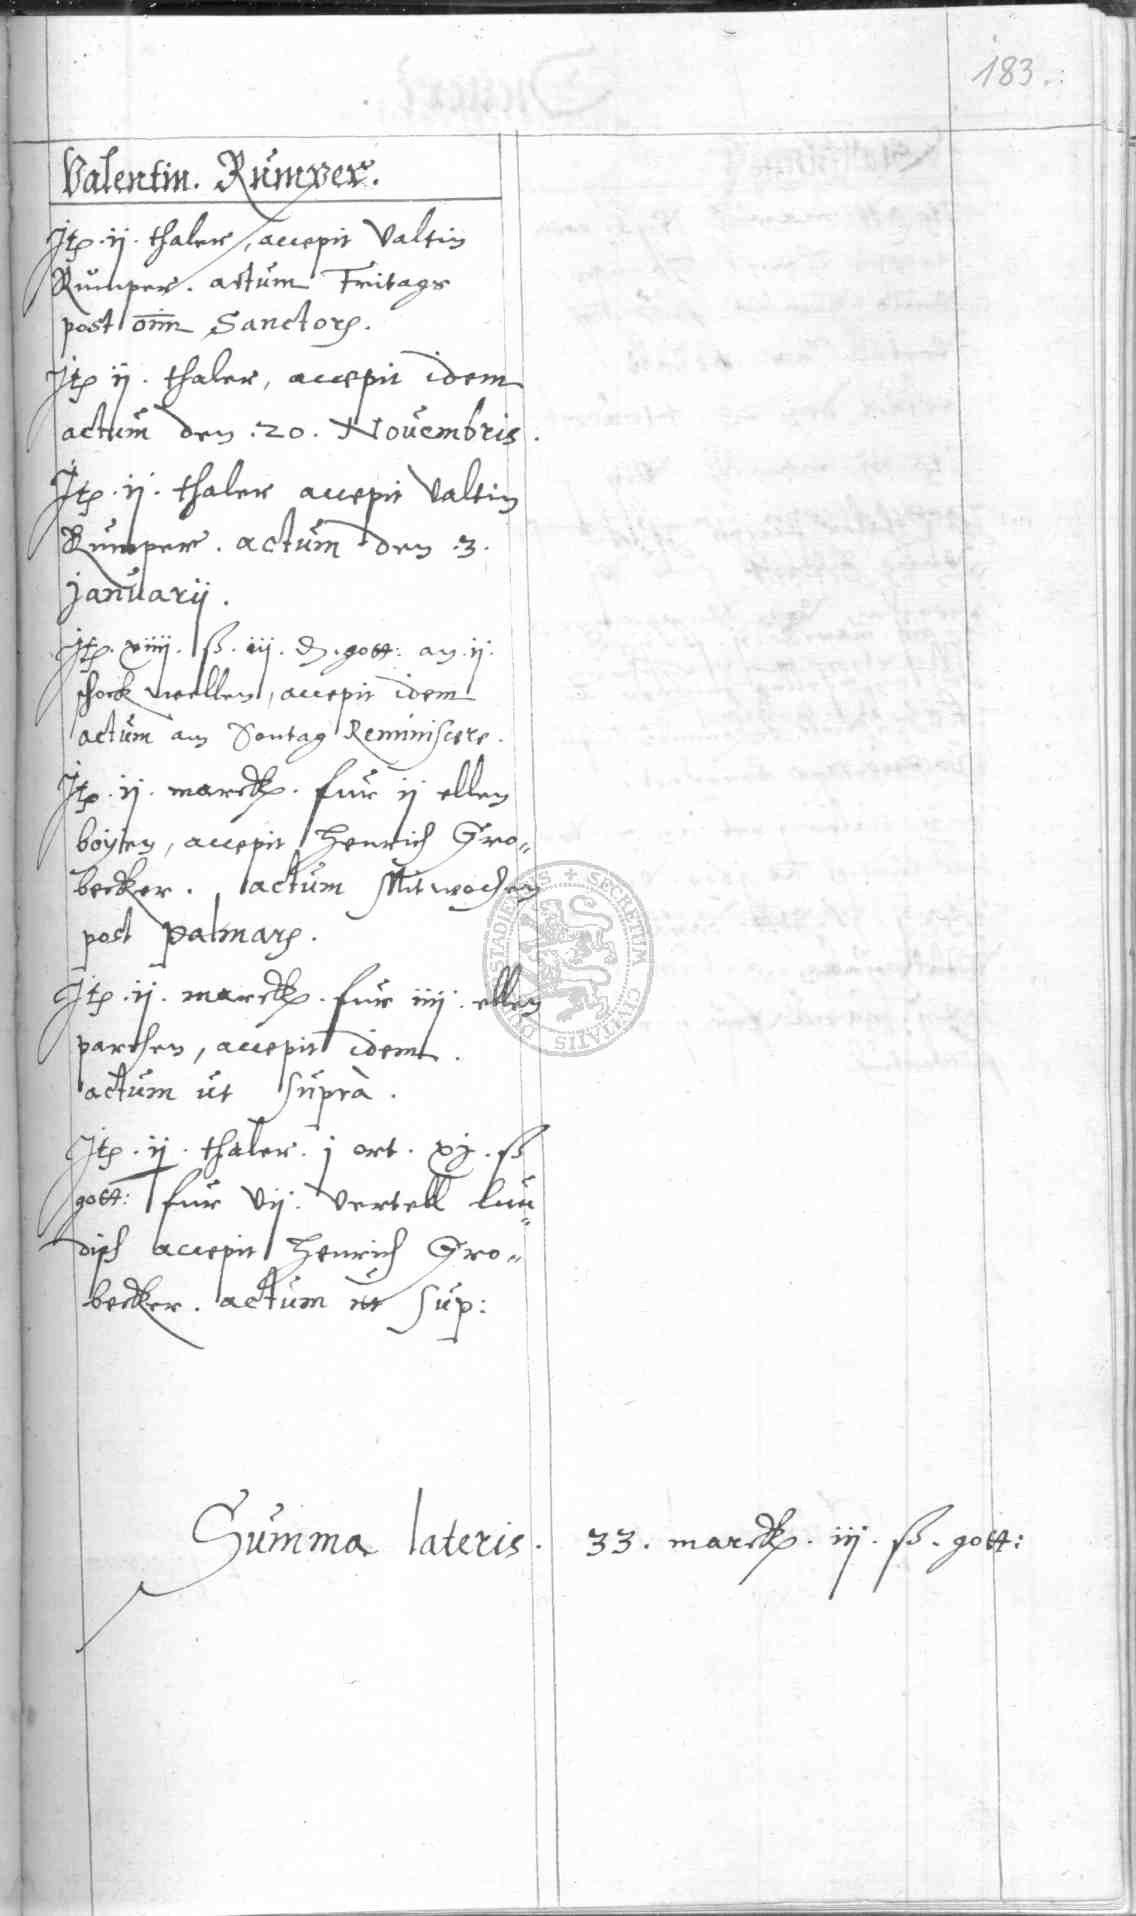 183.
Valentin. Rümper.
Jtp. ij. thaler, accepit Valtin
Rümper. actüm Fritags
post om̅n Sanctorꝫ.
Jtp ij. thaler, accepit idem
actüm den .20. Novembris.
Jtp. ij. thaler accepit Valtin
Rümper. actüm den .3.
januarij.
Jtp. xiiij. ß. iij. ₰. gott: an ij.
schock wellen, accepit idem
actüm am Sontag Reminiscere.
Jtp. ij. marck. für ij ellen
boyien, accepit Henrich Gro„
becker. actüm Mitwochen
post palmarꝫ.
Jtp. ij. marck. für iiij. ellen
parchen, accepit idem.
actüm üt süprà.
Jtp. ij. thaler. j ort. xj. ß
gott: für vij. vertell lün„
disch accepit Henrich Gro„
becker. actüm üt süp:
Sümma lateris. 33. marck. iij. ß. gott:
SECRETUM CIVITATIS STADIENSIS